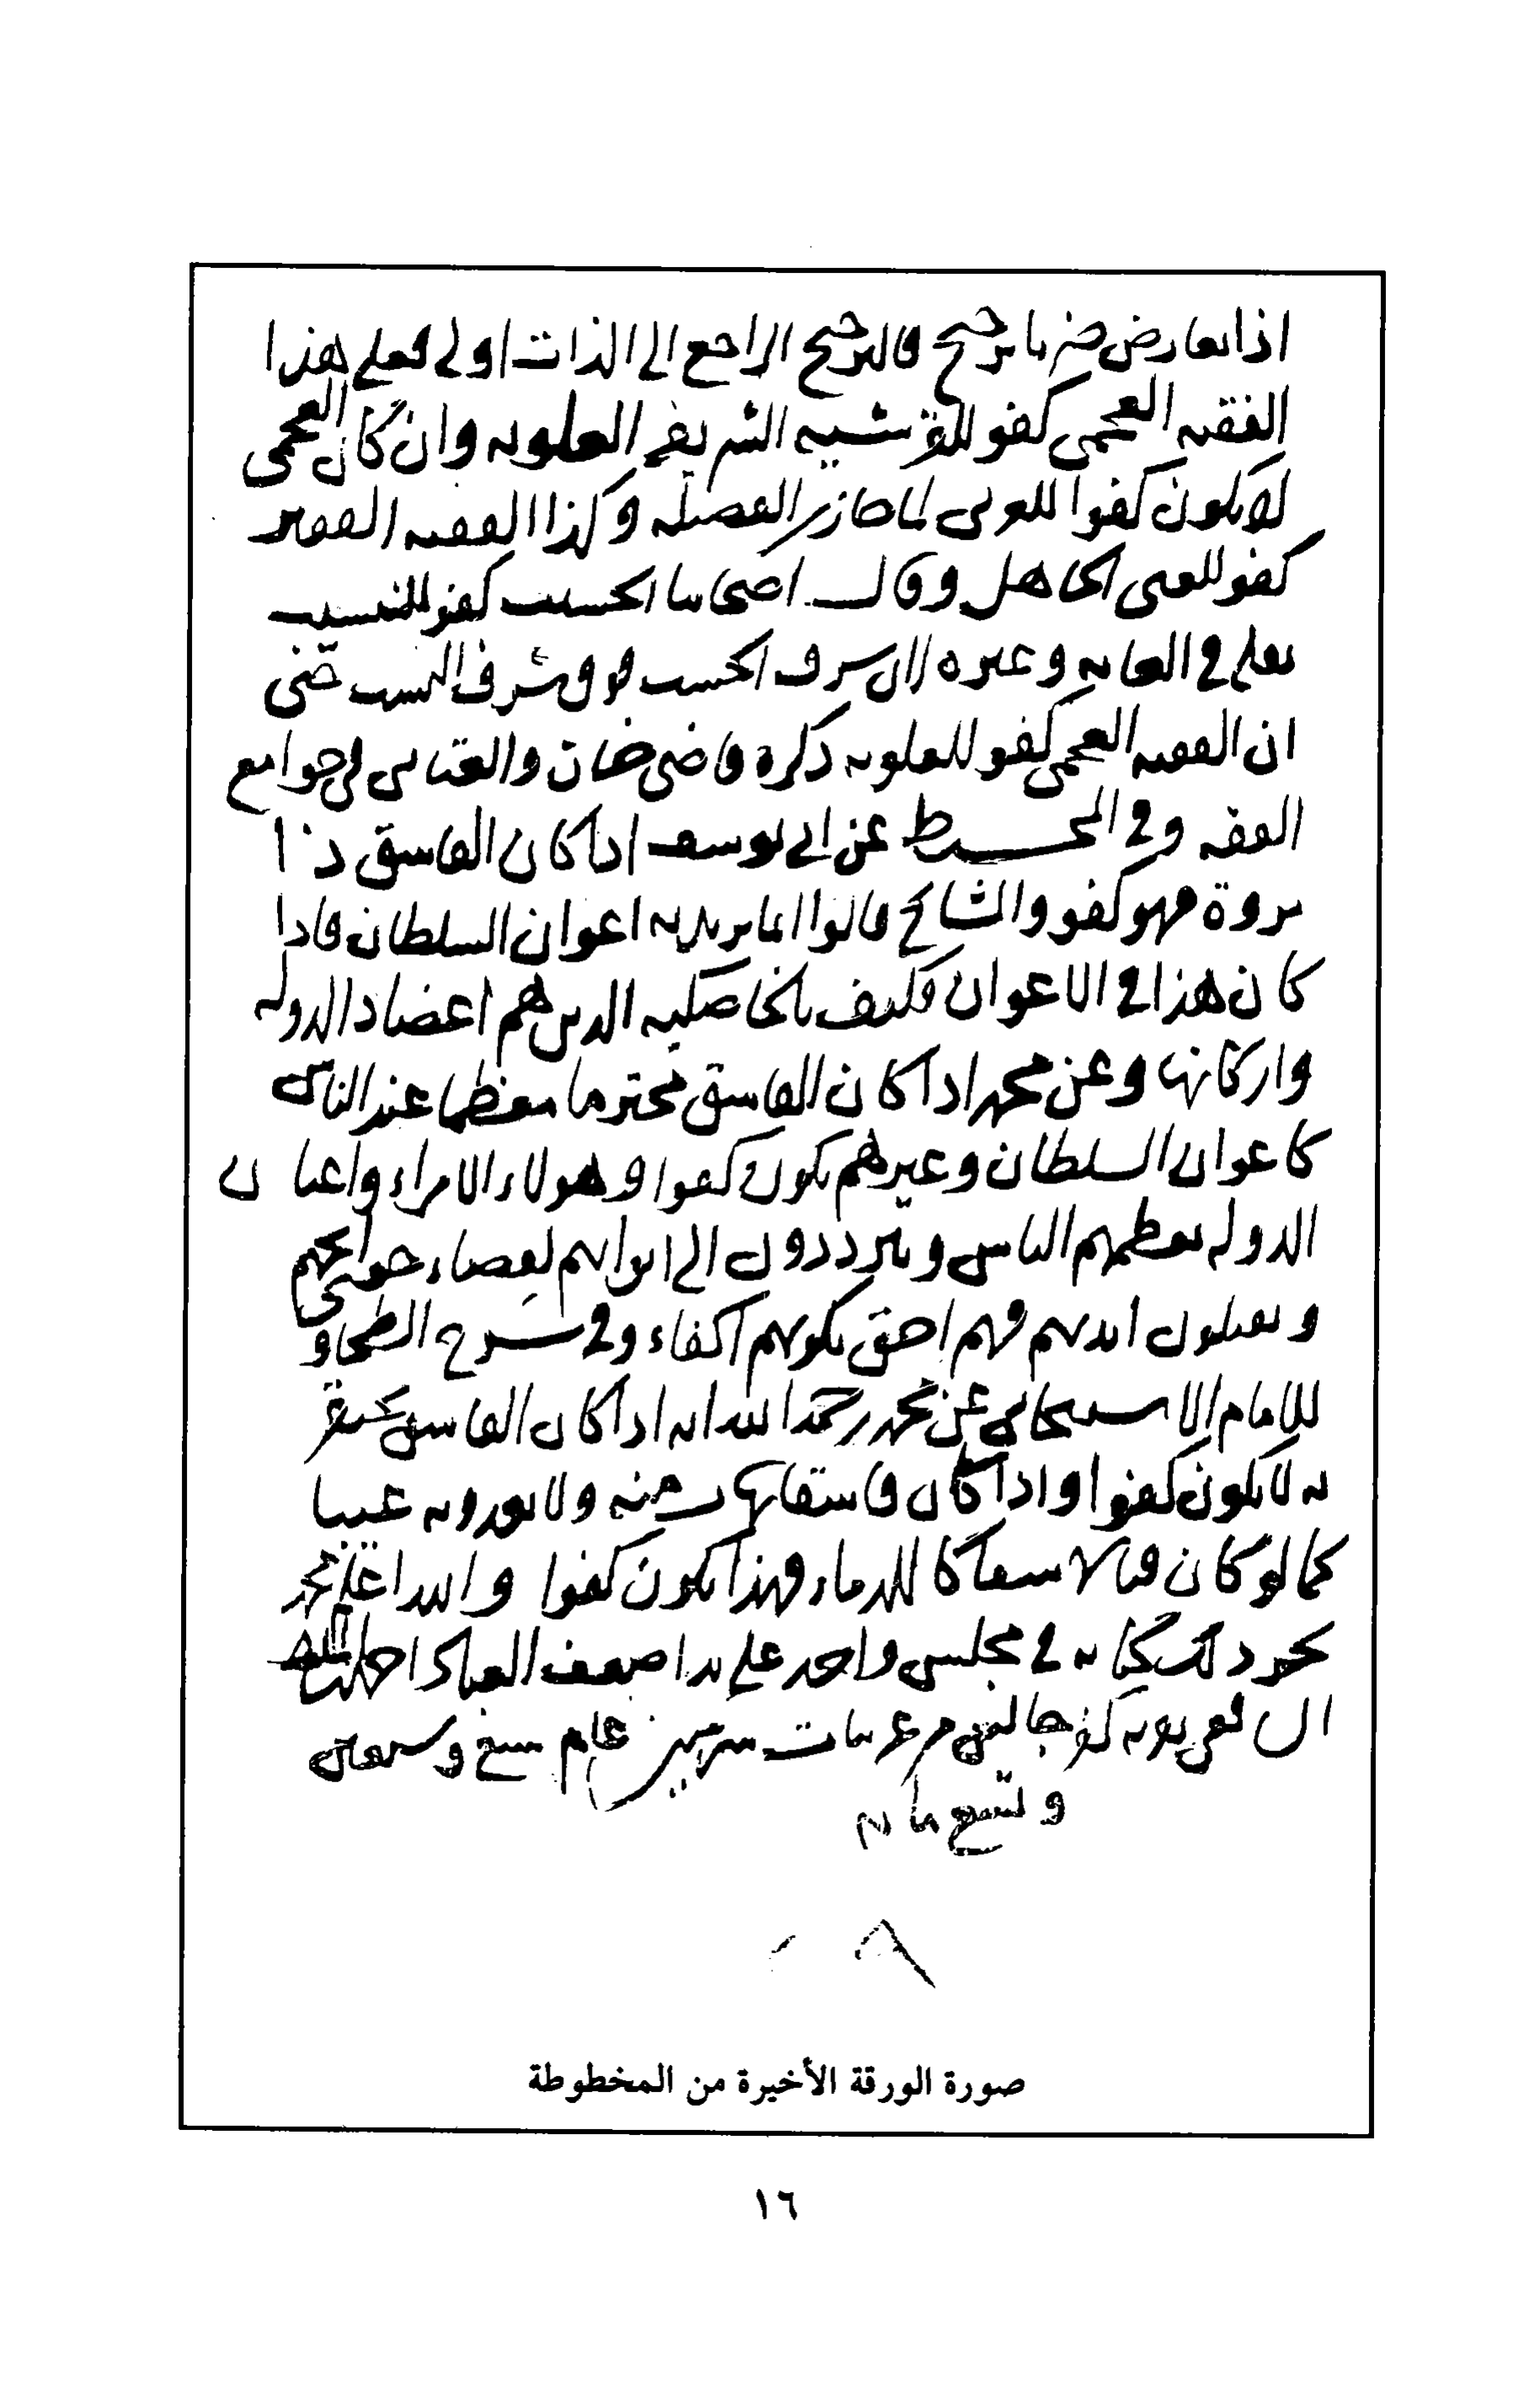 اذا تعارض ضربا ترجيح فالترجيح الراجع الى الذات اولى فعلى هذا
الفقيه العجمي كفو للقرشيه الشريفه العلويه وان كان العجمي
لا يكون كفوا للعربي لما حاز من الفضيله وكذا الفقيه الفقير
كفو للغني الجاهل وقال اصحابنا الحسيب كفو للنسيب
نقله في الغايه وغيره لان شرف الحسب فوق شرف النسب حتى
ان الفقيه العجمي كفو للعلويه ذكره قاضي خان والعتابي في جوامع
الفقه وفي المحيط عن ابي يوسف اذا كان الفاسق ذا
مروة فهو كفو والمشايخ قالوا انما يريد به اعوان السلطان فاذا
كان هذا في الاعوان فكيف بالخاصكيه الذين هم اعضاد الدوله
واركانها وعن محمد اذا كان الفاسق محترما معظما عند الناس
كاعوان السلطان وغيرهم يكون كفوا وهولاء الامراء واعيان
الدوله يعظمهم الناس ويترددون الى ابوابهم لقضاء حوايجهم
ويقبلون ايديهم فهم احق بكونهم اكفاء وفي شرح الطحاوي
للامام الاسبيجابي عن محمد رحمه الله انه اذا كان الفاسق يستخف
به لا يكون كفوا واذا كان فاسقا يهاب منه ولا يعدونه عيبا
كما لو كان قتالا سفاكا للدماء فهذا يكون كفوا والله اعلم
ذلك كتابه في مجلس واحد على يد اضعف العباد
عام سبع وسبعين
وتسع مايه
صورة الورقة الأخيرة من المخطوطة
١٦